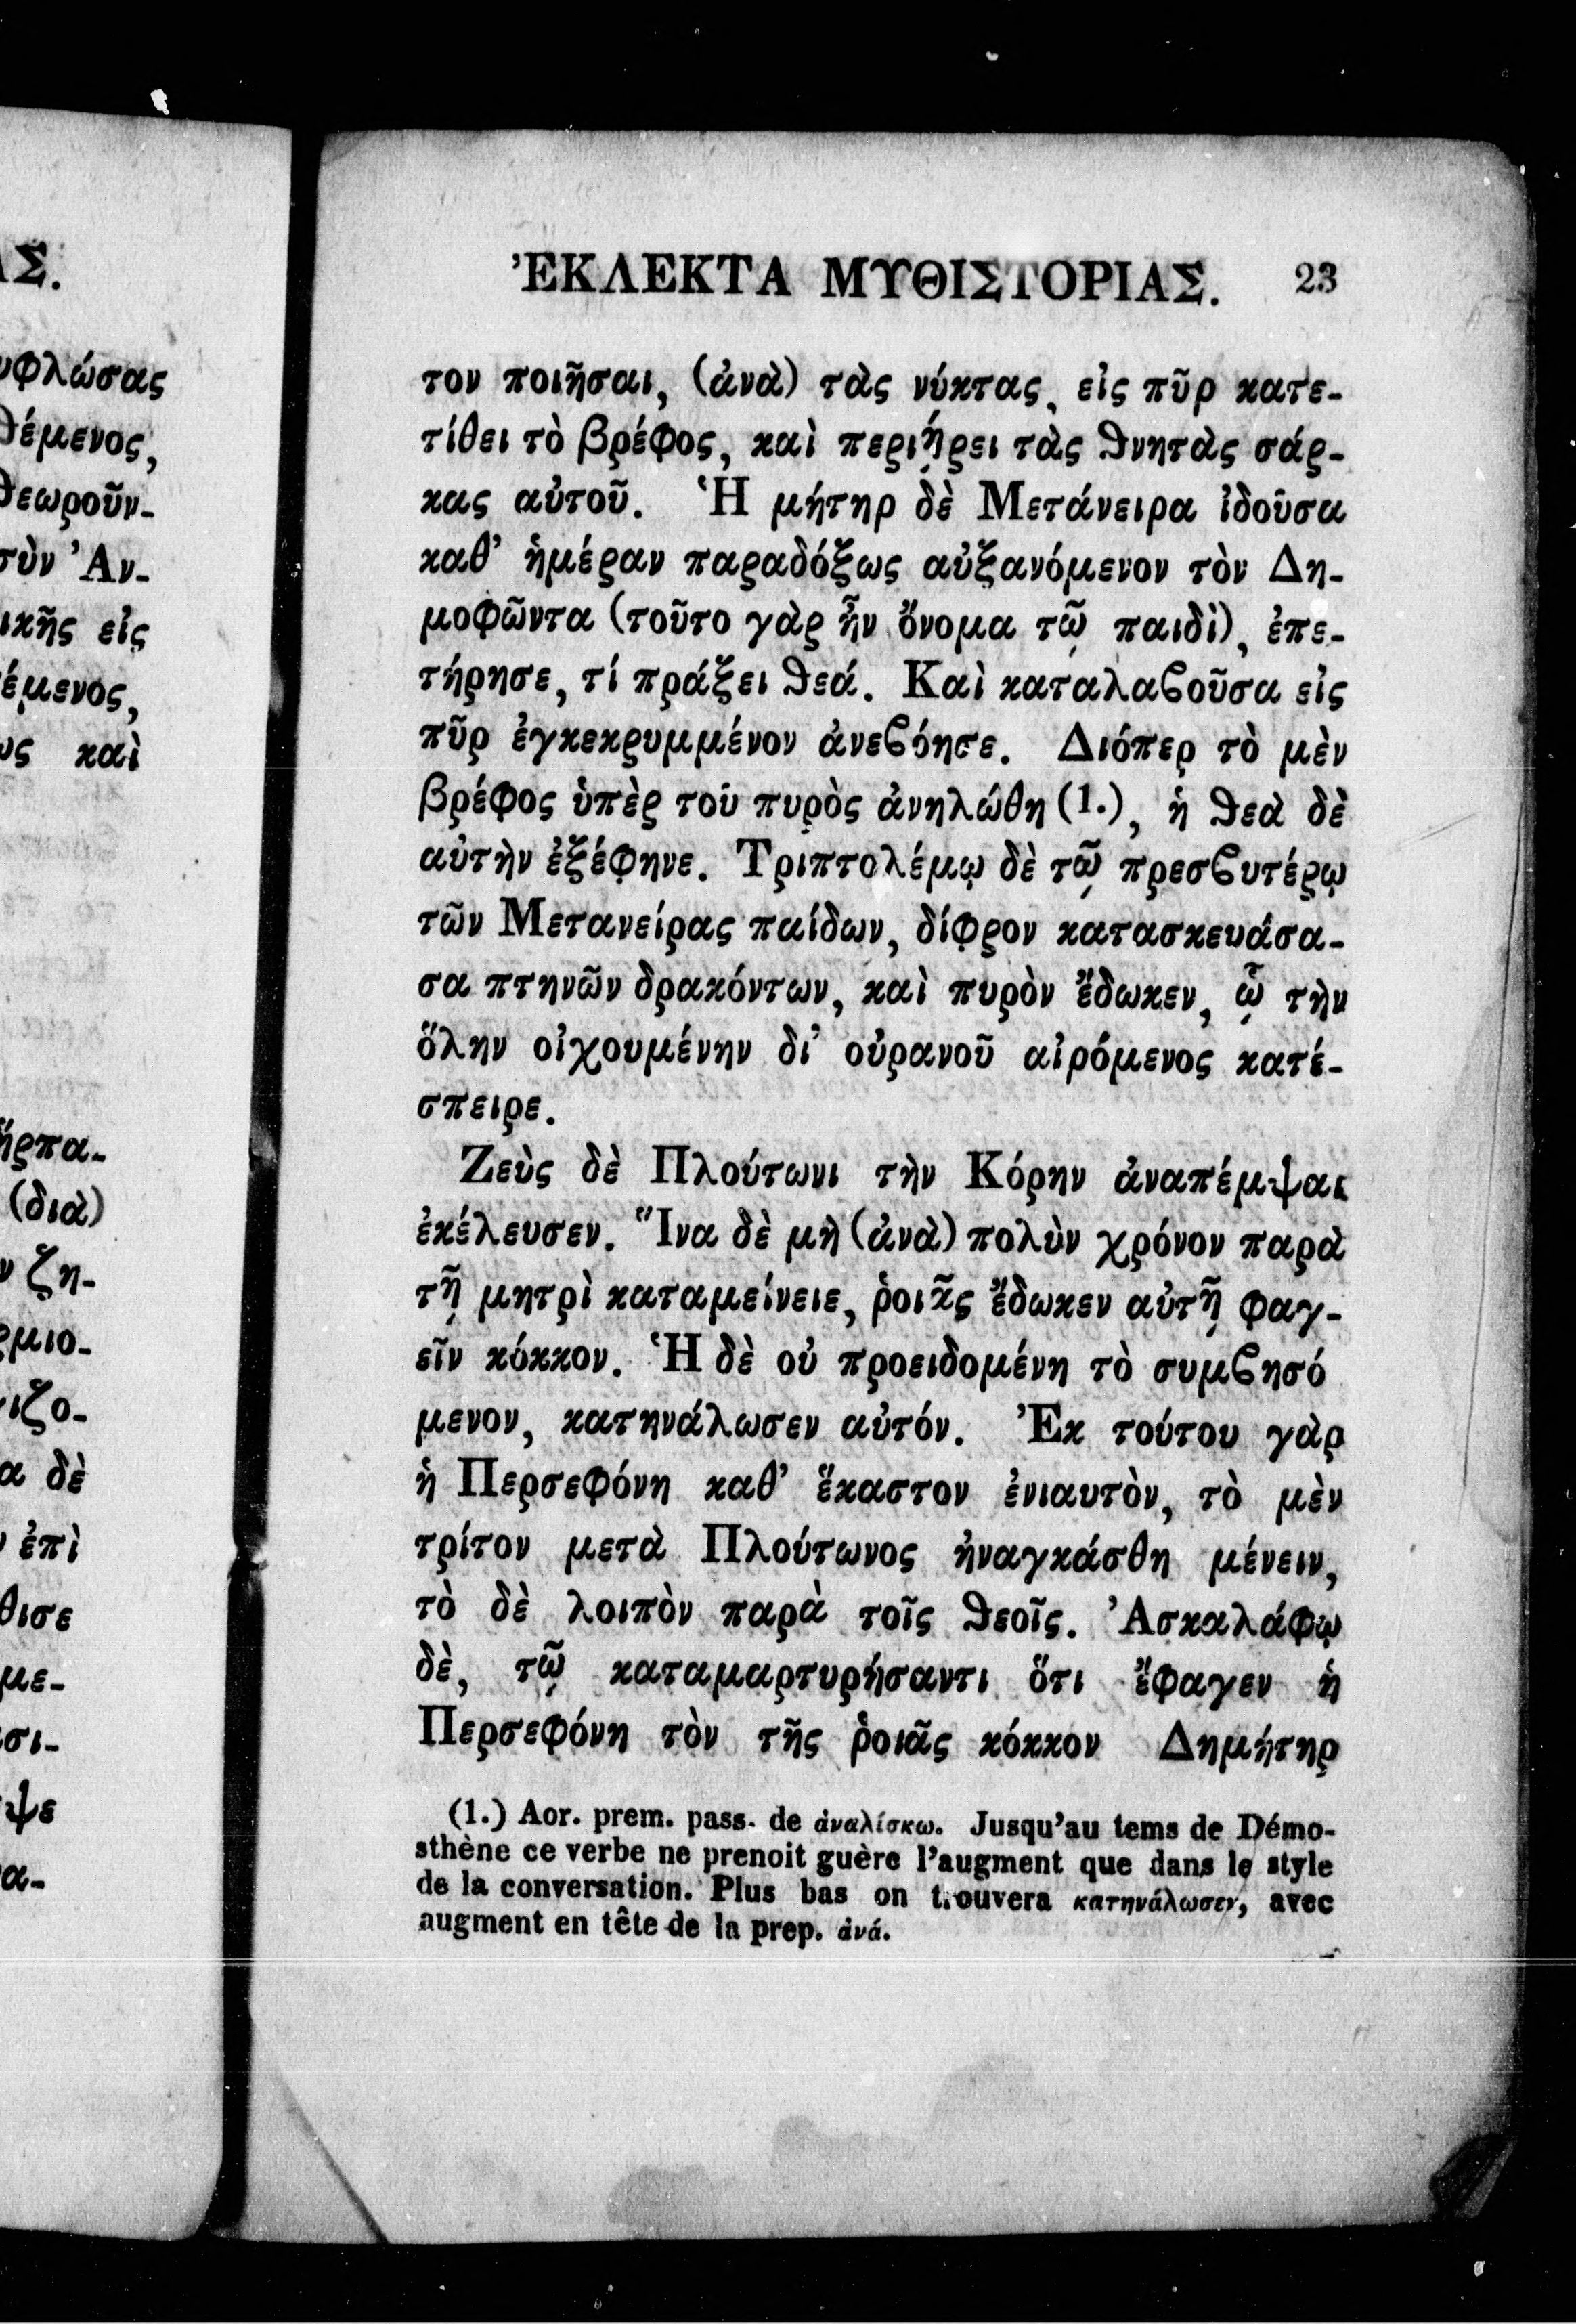 ΑΣ.
υφλώσας
θέμενος,
θεωροῦν-
τὺν Ἀν-
ικῆς εἰς
έμενος,
ως καὶ
ήρπα-
(διὰ)
ν ζη-
ρμιο-
ιζο-
α δὲ
ἐπὶ
θισε
με-
σι-
ψε
α-
ἘΚΛΕΚΤΑ ΜΥΘΙΣΤΟΡΙΑΣ. 23
τον ποιῆσαι, (ἀνὰ) τὰς νύκτας, εἰς πῦρ κατε-
τίθει τὸ βρέφος, καὶ περιῄρει τὰς θνητὰς σάρ-
κας αὐτοῦ. Ἡ μήτηρ δὲ Μετάνειρα ἰδοῦσα
καθ’ ἡμέραν παραδόξως αὐξανόμενον τὸν Δη-
μοφῶντα (τοῦτο γὰρ ἦν ὄνομα τῷ παιδὶ), ἐπε-
τήρησε, τί πράξει θεά. Καὶ καταλαϐοῦσα εἰς
πῦρ ἐγκεκρυμμένον ἀνεϐόησε. Διόπερ τὸ μὲν
βρέφος ὑπὲρ τοῦ πυρὸς ἀνηλώθη (1.), ἡ θεὰ δὲ
αὐτὴν ἐξέφηνε. Τριπτολέμῳ δὲ τῷ πρεσϐυτέρῳ
τῶν Μετανείρας παίδων, δίφρον κατασκευάσα-
σα πτηνῶν δρακόντων, καὶ πυρὸν ἔδωκεν, ᾧ τὴν
ὅλην οἰχουμένην δι’ οὐρανοῦ αἰρόμενος κατέ-
σπειρε.
Ζεὺς δὲ Πλούτωνι τὴν Κόρην ἀναπέμψαι
ἐκέλευσεν. Ἵνα δὲ μὴ (ἀνὰ) πολὺν χρόνον παρὰ
τῇ μητρὶ καταμείνειε, ῥοιᾶς ἔδωκεν αὐτῇ φαγ-
εῖν κόκκον. Ἡ δὲ οὐ προειδομένη τὸ συμϐησό
μενον, κατηνάλωσεν αὐτόν. Ἐκ τούτου γὰρ
ἡ Περσεφόνη καθ’ ἕκαστον ἐνιαυτὸν, τὸ μὲν
τρίτον μετὰ Πλούτωνος ἠναγκάσθη μένειν,
τὸ δὲ λοιπὸν παρὰ τοῖς θεοῖς. Ἀσκαλάφῳ
δὲ, τῷ καταμαρτυρήσαντι ὅτι ἔφαγεν ἡ
Περσεφόνη τὸν τῆς ῥοιᾶς κόκκον Δημήτηρ
(1.) Aor. prem. pass. de ἀναλίσκω. Jusqu’au tems de Démo-
sthène ce verbe ne prenoit guère l’augment que dans le style
de la conversation. Plus bas on trouvera κατηνάλωσεν, avec
augment en tête de la prep. ἀνά.